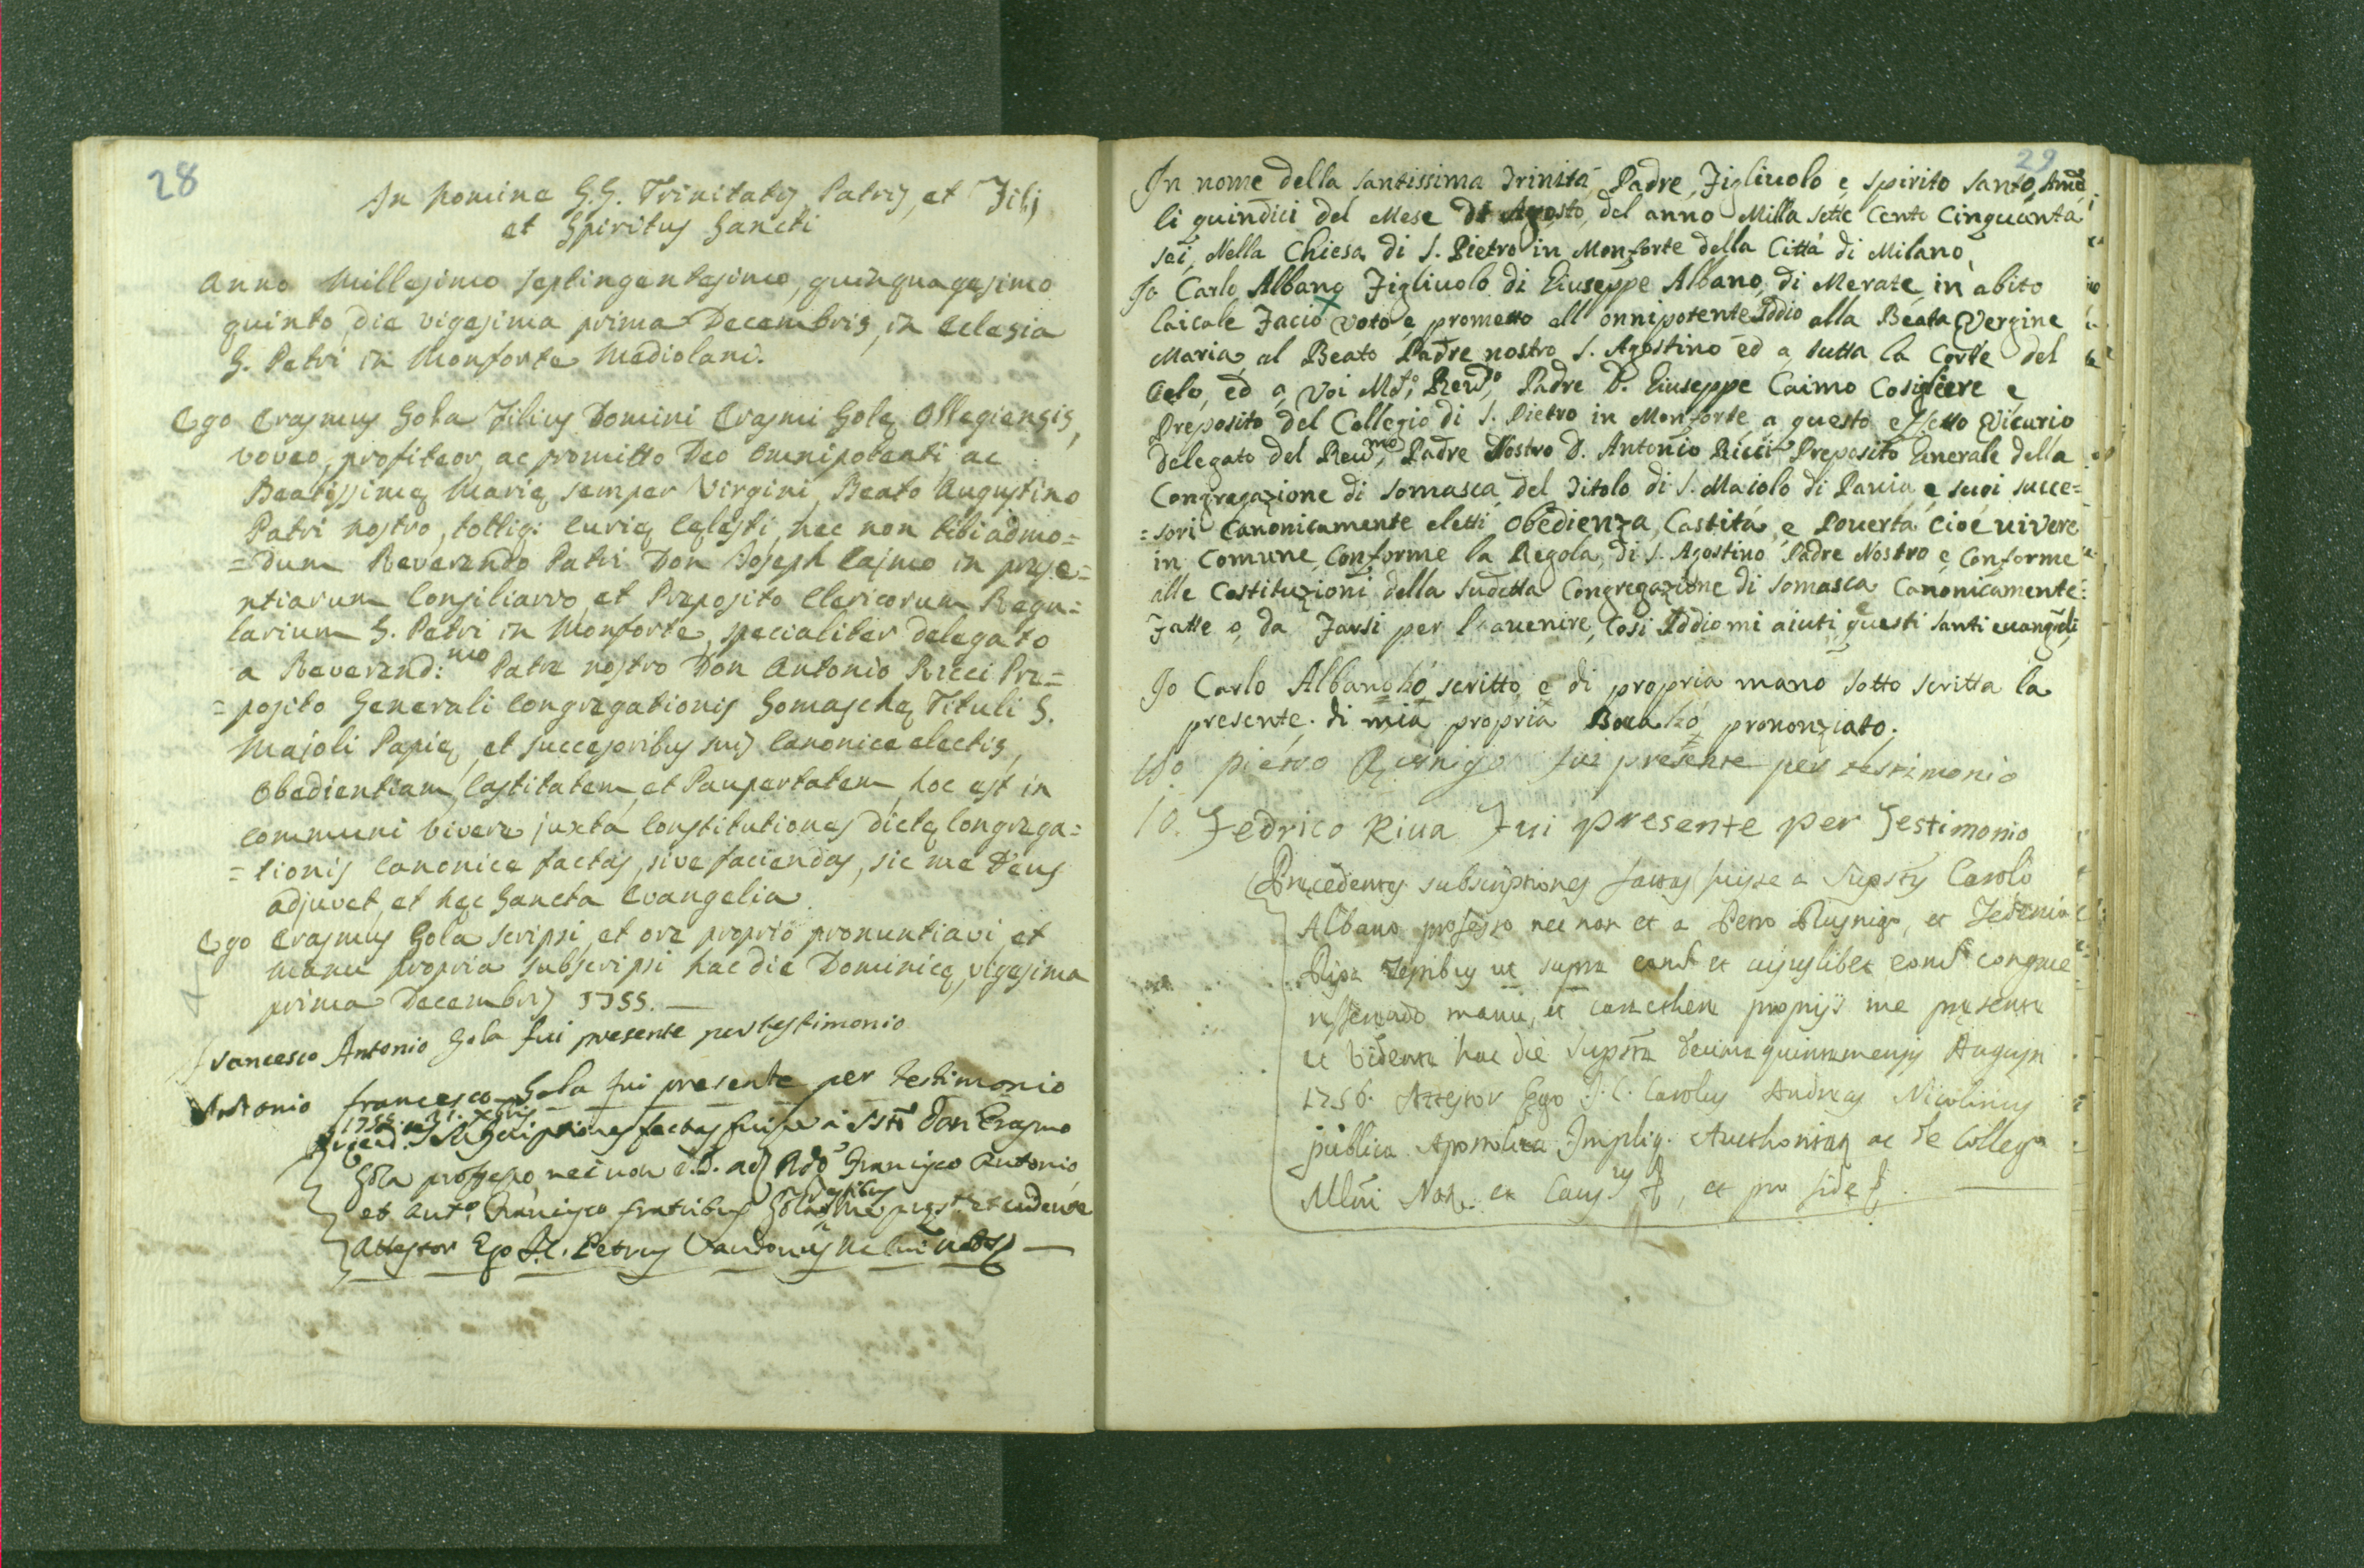 28
In Nomine S.S. Trinitatis, Patris, et Filij
et Spiritus Sancti
Anno Millesimo septingentesimo, quinquagesimo
quinto, die vigesima prima Decembris, in Eclesia
S. Petri in Monforte Mediolani.
Ego Erasmus Gola Filius Domini Erasmi Golę Ollegiensis,
voveo, profiteor, ac promitto Deo Omnipotenti, ac
Beatissimę Marię semper Virgini, Beato Augustino
Patri nostro, totiq: Curię Cęlesti, nec non tibi admo=
=dum Reverendo Patri Don Joseph Cajmo in prese=
ntiarum Consiliario, et Preposito Clericorum Regu=
larium S. Petri in Monforte, specialiter delegato
a Reverend:mo Patre nostro Don Antonio Ricci Pre=
=posito Generali Congregationis Somaschę Tituli S.
Majoli Papię, et successoribus suis Canonice electis,
Obedientiam, Castitatem, et Paupertatem, hoc est in
communi vivere juxta Constitutiones dictę Congrega=
=tionis Canonice factas, sive faciendas, sic me Deus
adjuvet, et hęc Sancta Evangelia.
Ego Erasmus Gola scripsi, et ore proprio pronuntiavi, et
manu propria subscripsi hac die Dominicę, vigesima
prima Decembris 1755. —
Francesco Antonio Gola fui presente per testimonio
Antonio francesco Gola fui presente per testimonio
1755. 21. Xbris
subscriptiones factas fuisse a Don Erasmo
Gola professo nec non Francisco Antonio
et Anto. Francisco fratribus Gola testibus me pręste. et vidente
Attestor Ego J.C. Petrus
29
In nome della santissima Trinità, Padre, Figliuolo e, Spirito Santo, Ame
li quindici del Mese di Agosto, del anno Milla sette Cento Cinquanta
sei, Nella Chiesa di S. Pietro in Monforte della Città di Milano,
Io Carlo Albano Figliuolo di Giuseppe Albano, di Merate, in abito
laicale Facio voto e, prometto all onnipotente Iddio alla Beata Vergine
Maria, al Beato Padre nostro S. Agostino ed a tutta la Corte del
Celo, ed a Voi Mo. Revdo. Padre D. Giuseppe Caimo Cosigliere e
Preposito del Collegio di S. Pietro in Monforte, a questo effetto Vicario
delegato del Revmo. Padre Nostro D. Antonio Ricci Preposito Generale della
Congregazione di Somasca del Titolo di S. Maiolo di Pavia, e suoi succe=
=sori Canonicamente eletti, obedienza, Castità, e Poverta, cioè vivere
in Comune, Conforme la Regola, di S. Agostino Padre Nostro e Conforme
alle Costituzioni della sudetta Congregazione di Somasca Canonicamente:
Fatte o, da Farsi per l'avenire, Cosi Iddio mi aiuti, questi santi evangeli
Io Carlo Albano hó scritto, e di propria mano sotto scritta la
presente. di mia propria Boca hó prononziato.
Io pietro Rusnigo fui presente per testimonio
Io. Fedrico Riva Fui presente per Testimonio
Pręcedentes subscriptiones factas fuisse a Carolo
Albano professo nec non et a Petro Rusnigo, et
Ripa testibus ut supra et cujuslibet
manu, et proprijs me pręsente
et vidente hac die decima quinta mensis Augusti
1756. Attestor Ego J.C. Carolus Andreas Nicolinus
publica Apostolica Auctoritate ac de Collegio
Not. et pro fide